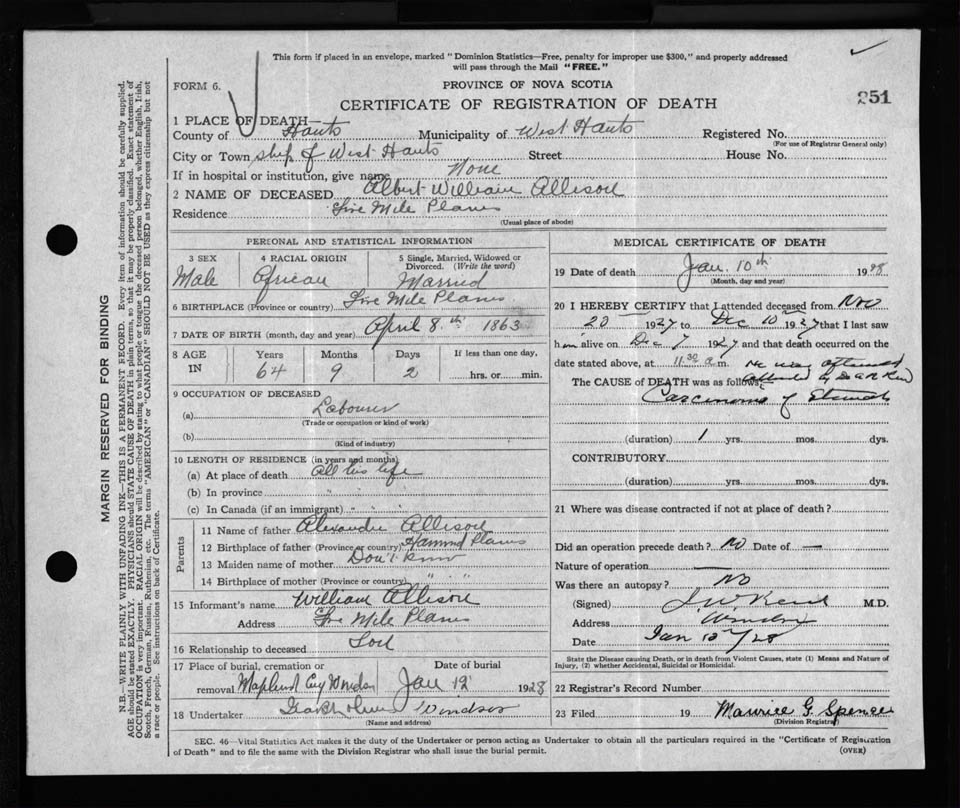 This form if placed in an envelope, marked "Dominion Statistics—Free, penalty for improper use $300," and properly addressed
will pass through the Mail "FREE."
FORM 6.
PROVINCE OF NOVA SCOTIA
CERTIFICATE OF REGISTRATION OF DEATH
251
1 PLACE OF DEATH—
County of Hants Municipality of West Hants Registered No.
(For use of Registrar General only)
City or Town ship of West Hants Street House No.
If in hospital or institution, give name None
2 NAME OF DECEASED Albert William Allison
Residence Five Mile Plains
(Usual place of abode)
PERSONAL AND STATISTICAL INFORMATION
3 SEX 4 RACIAL ORIGIN 5 Single, Married, Widowed or Divorced. (Write the word)
Male African Married
6 BIRTHPLACE (Province or country) Five Mile Plains
7 DATE OF BIRTH (month, day and year) April 8th 1863
8 AGE IN Years Months Days If less than one day,
64 9 2 hrs. or min.
9 OCCUPATION OF DECEASED
(a) Labourer
(Trade or occupation or kind of work)
(b)
(Kind of industry)
10 LENGTH OF RESIDENCE (in years and months)
(a) At place of death All his life
(b) In province " "
(c) In Canada (if an immigrant) " "
Parents
11 Name of father Alexander Allison
12 Birthplace of father (Province or country) Hammond Plains
13 Maiden name of mother Don't know
14 Birthplace of mother (Province or country) " "
15 Informant's name William Allison
Address Five Mile Plains
16 Relationship to deceased Son
17 Place of burial, cremation or removal Date of burial
Windsor Jan 12 1928
18 Undertaker Windsor
(Name and address)
MEDICAL CERTIFICATE OF DEATH
19 Date of death Jan. 10th 1928
(Month, day and year)
20 I HEREBY CERTIFY that I attended deceased from Nov
1927 to Dec 10 1927 that I last saw
him alive on Dec 7 1927 and that death occurred on the
date stated above, at 11.30 a m. He was afterward
The CAUSE of DEATH was as follows: attended by
Carcinoma of Stomach
(duration) 1 yrs. mos. dys.
CONTRIBUTORY
(duration) yrs. mos. dys.
21 Where was disease contracted if not at place of death?
Did an operation precede death? No Date of —
Nature of operation —
Was there an autopsy? No
(Signed) M.D.
Address Windsor
Date Jan 12/28
State the Disease causing Death, or in death from Violent Causes, state (1) Means and Nature of
Injury, (2) whether Accidental, Suicidal or Homicidal.
22 Registrar's Record Number
23 Filed 19 Maurice G. Spence
(Division Registrar)
SEC. 46—Vital Statistics Act makes it the duty of the Undertaker or person acting as Undertaker to obtain all the particulars required in the "Certificate of Registration
of Death" and to file the same with the Division Registrar who shall issue the burial permit.
(OVER)
MARGIN RESERVED FOR BINDING
N.B.—WRITE PLAINLY WITH UNFADING INK—THIS IS A PERMANENT RECORD. Every item of information should be carefully supplied.
AGE should be stated EXACTLY. PHYSICIANS should STATE CAUSE OF DEATH in plain terms, so that it may be properly classified. Exact statement of
OCCUPATION is very important. RACIAL ORIGIN will be described by stating to what people or tongue the deceased person belonged, whether English, Irish,
Scotch, French, German, Russian, Ruthenian, etc. The terms "AMERICAN" or "CANADIAN" SHOULD NOT BE USED as they express citizenship but not
a race or people. See instructions on back of Certificate.